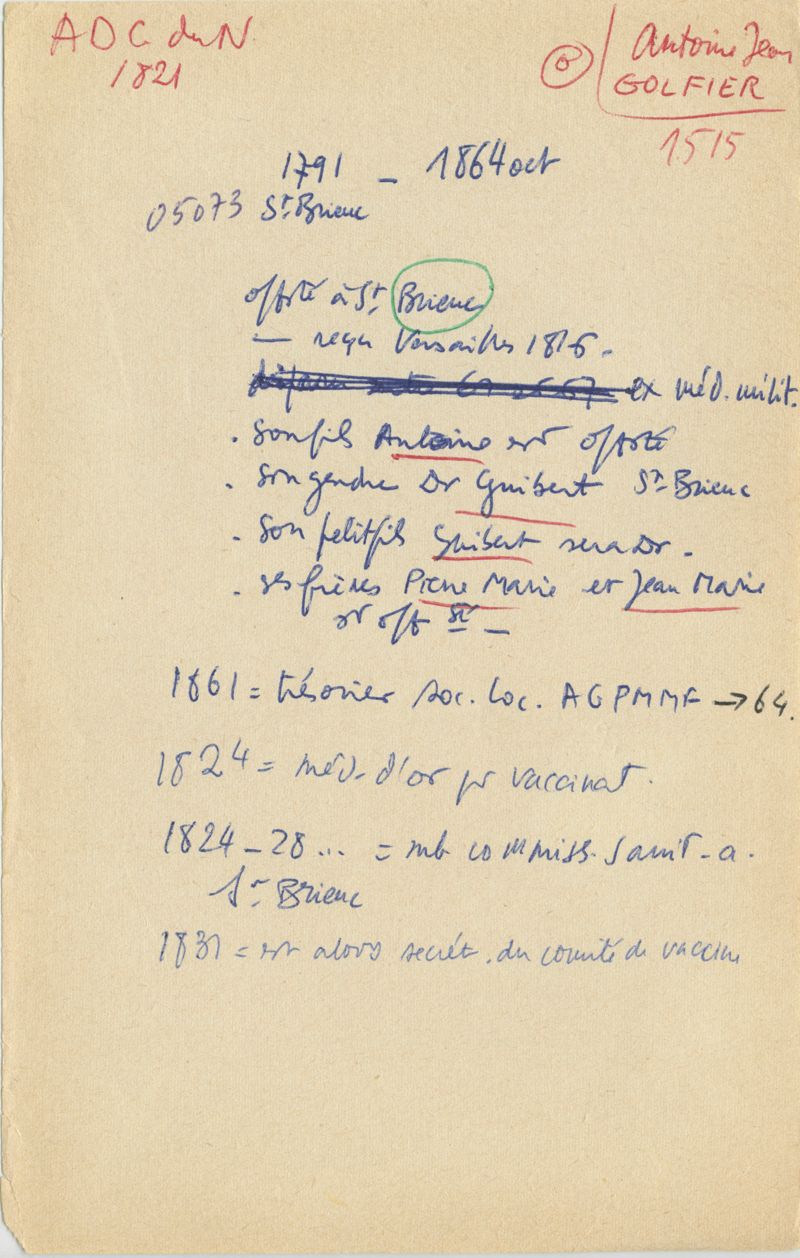 ADC. du N
1821
Ⓞ Antoine Jean
GOLFIER
1515
1791 - 1864 oct
05073 St. Brieuc
offté à St. Brieuc
— reçu Versailles 1816.
ex méd. milit.
. son fils Antoine est offté
. son gendre Dr Guibert St. Brieuc
. son petit fils Guibert sera Dr.
. ses frères Pierre Marie et Jean Marie
st off sté —
1861 = trésorier soc. loc. AGPMMF → 64.
1824 = méd. d'or pr vaccinat.
1824 - 28 ... = mb commiss. sanit. a.
St. Brieuc
1831 = est alors secrét. du comité de vaccine